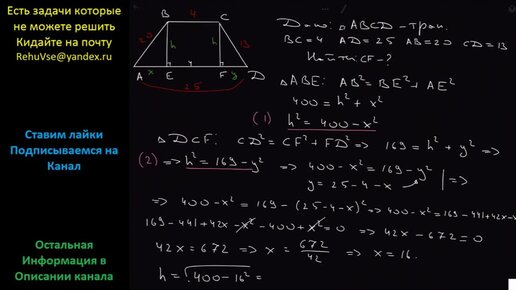 Есть задачи которые
не можете решить
Кидайте на почту
RehuVse@yandex.ru
Ставим лайки
Подписываемся на
Канал
Остальная
Информация в
Описании канала
B 4 C
20 h h 13
A x E 4 F y D
25
Дано: ▵ABCD - трап.
BC=4 AD=25 AB=20 CD=13
Найти: CF-?
▵ABE: AB² = BE² + AE²
400 = h² + x²
(1) h² = 400 - x²
▵DCF: CD² = CF² + FD² => 169 = h² + y² =>
(2) => h² = 169 - y² => 400 - x² = 169 - y²
y = 25 - 4 - x | =>
=> 400 - x² = 169 - (25-4-x)² => 400 - x² = 169 - 441 + 42x - x²
169 - 441 + 42x - x² - 400 + x² = 0 => 42x - 672 = 0
42x = 672 => x = 672/42 => x = 16.
h = √400 - 16² =